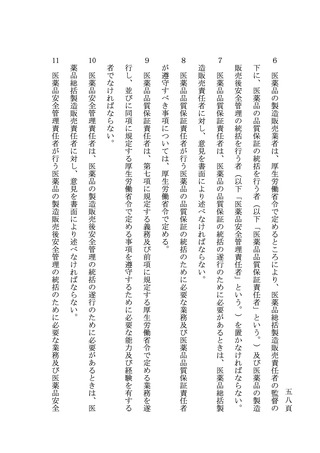 五八頁
6　医薬品の製造販売業者は、厚生労働省令で定めるところにより、医薬品総括製造販売責任者の監督の
下に、医薬品の品質保証の統括を行う者（以下「医薬品品質保証責任者」という。）及び医薬品の製造
販売後安全管理の統括を行う者（以下「医薬品安全管理責任者」という。）を置かなければならない。
7　医薬品品質保証責任者は、医薬品の品質保証の統括の遂行のために必要があるときは、医薬品総括製
造販売責任者に対し、意見を書面により述べなければならない。
8　医薬品品質保証責任者が行う医薬品の品質保証の統括のために必要な業務及び医薬品品質保証責任者
が遵守すべき事項については、厚生労働省令で定める。
9　医薬品品質保証責任者は、第七項に規定する義務及び前項に規定する厚生労働省令で定める業務を遂
行し、並びに同項に規定する厚生労働省令で定める事項を遵守するために必要な能力及び経験を有する
者でなければならない。
10　医薬品安全管理責任者は、医薬品の製造販売後安全管理の統括の遂行のために必要があるときは、医
薬品総括製造販売責任者に対し、意見を書面により述べなければならない。
11　医薬品安全管理責任者が行う医薬品の製造販売後安全管理の統括のために必要な業務及び医薬品安全